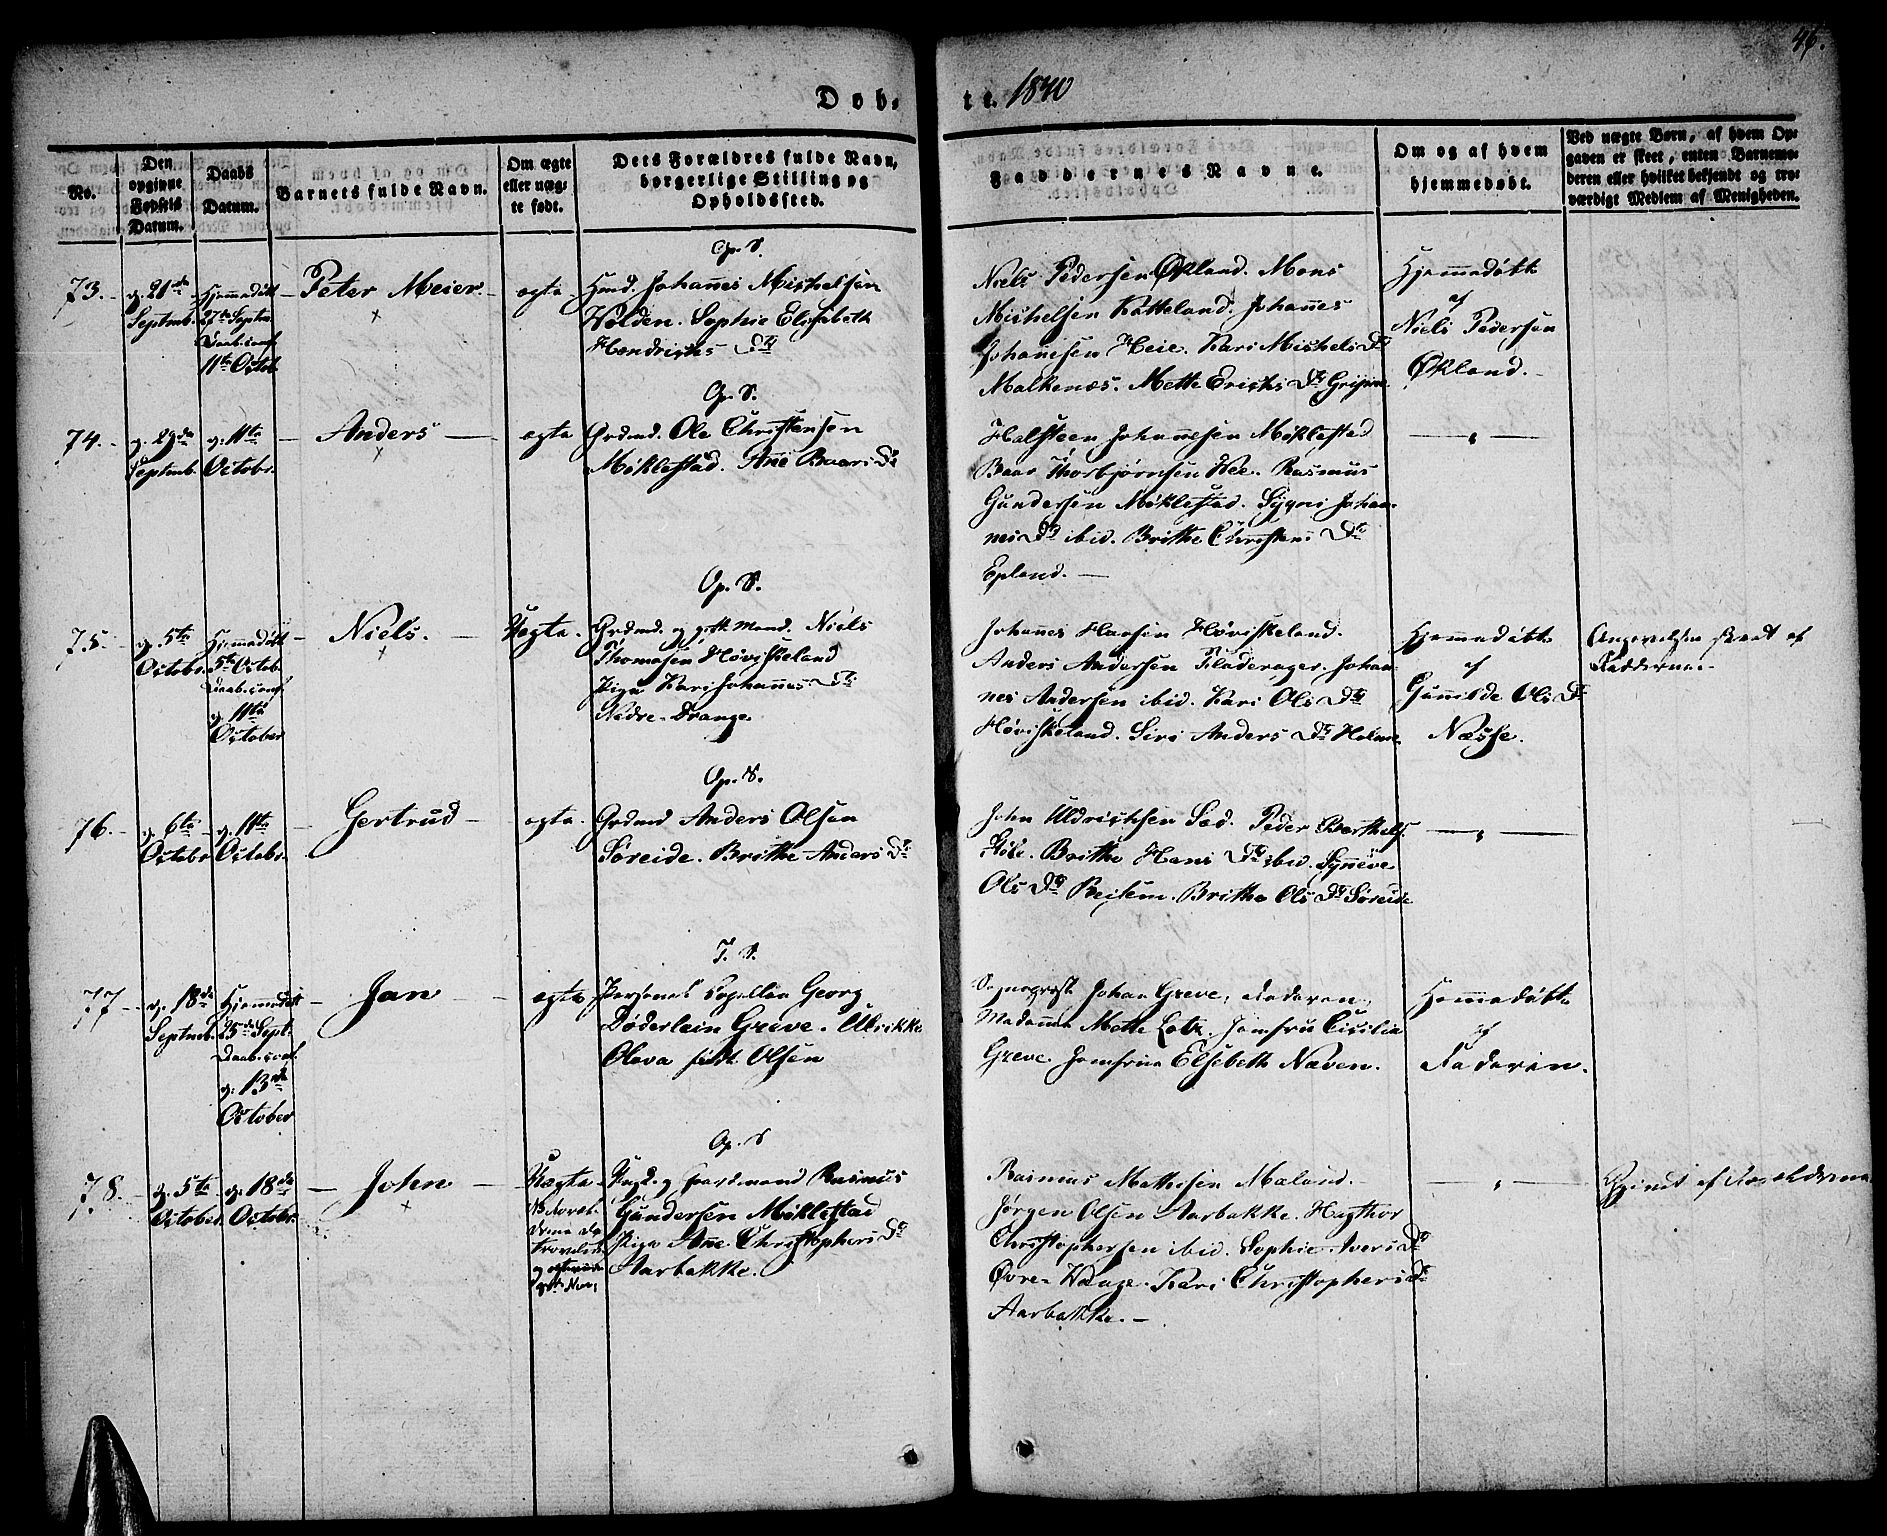 46.
Døb-
te. 1840
No.
Den
opgivne
Fødsels
Datum.
Daabs
Datum.
Barnets fulde Navn.
Om ægte
eller uæg-
te født.
Dets Forældres fulde Navn,
borgerlige Stilling og
Opholdssted.
Faddernes Navne.
Om og af hvem
hjemmedøbt.
Ved uægte Børn, af hvem Op-
gaven er skeet, enten Barnemo-
deren eller hvilket bekjendt og tro-
værdigt Medlem af Menigheden.
73.
d. 21de
Septmb.
Hjemmedøbt
27de Septm.
Daab. conf.
11te Octob.
Peter Meier.
ægte
Op. S.
Huusmd. Johannes Michelsen
Wolden. Sophie Elisabeth
Hendrichs Dtr
Niels Pedersen Økland. Mons
Michelsen Katteland. Johannes
Johannesen Heie. Kari Michels Dr
Malkenæs. Mette Erichs Dr
Hjemmedøbt
af
Niels Pedersen
Økland.
74.
d. 29de
Septmb.
d. 11te
Octobr.
Anders
ægte
Op. S.
Grdmd. Ole Christensen
Møklestad. Ane Baars Dr
Halsteen Johannesen Møklestad
Baar Thorbjørnsen Wee. Rasmus
Gundersen Møklestad. Sygni Johan-
nes Dr ibid. Brithe Christens Dr
Epland.
75.
d. 5te
Octobr.
Hjemmedøbt
5te Octob.
Daab. conf.
d. 11te
October
Niels.
Uægte.
Op. S.
Grdmd. og gift Mand. Niels
Thomasen Høviskeland
Pige Kari Johannes Dr
Nedre-Drange.
Johannes Hansen Høviskeland.
Anders Andersen Fladerager. Johan-
nes Andersen ibid. Kari Ols Dr
Høviskeland. Siri Anders Dr Holme.
Hjemmedøbt
af
Gunnilde Ols Dr
Næsse.
Angivelsen skeet af
Fadderne.
76.
d. 6te
Octobr.
d. 11te
Octobr.
Gertrud
ægte.
Op. S.
Grdmd Anders Olsen
Søreide. Brithe Anders Dr
John Uldrichsen Sæd. Peder Barthels.
Brithe Hans Dr ibid. Synneve
Ols Dr Brithe Ols Dr Søreide
77
d. 18de
Septmb.
Hjemmedøbt
25de Sept.
Daab. conf.
d. 13de
October
Jan
ægte
T. S.
Personel Capellan Georg
Døderlein Greve. Ulrikke
Olava født Olsen
Sognepræst Johan Greve, Faderen,
Madamme Mette Lotz. Jomfru Cicilia
Greve Jomfrue Elsebeth Næven.
Hjemmedøbt
af
Faderen.
78.
d. 5te
October
d. 18de
Octobr.
John
Uægte.
Op. S
Ungk. og Gaardmand Rasmus
Gundersen Møklestad
Pige Ane Christophers Dr
Aarbakke.
Rasmus Mathisen Maland.
Jørgen Olsen Aarbakke. Hagthor
Christophersen ibid. Sophie Ivers Dr
Øvre-Waage. Kari Christophers Dr
Aarbakke.
af Forældrene